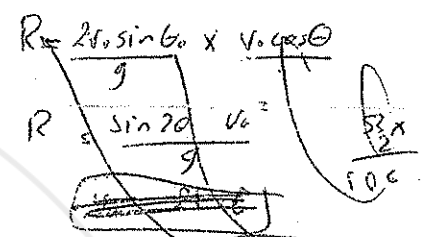 R = 2v₀ sin θ₀ / g × v₀ cos θ / 1
R = sin 2θ v₀² / g
53 × 2
106